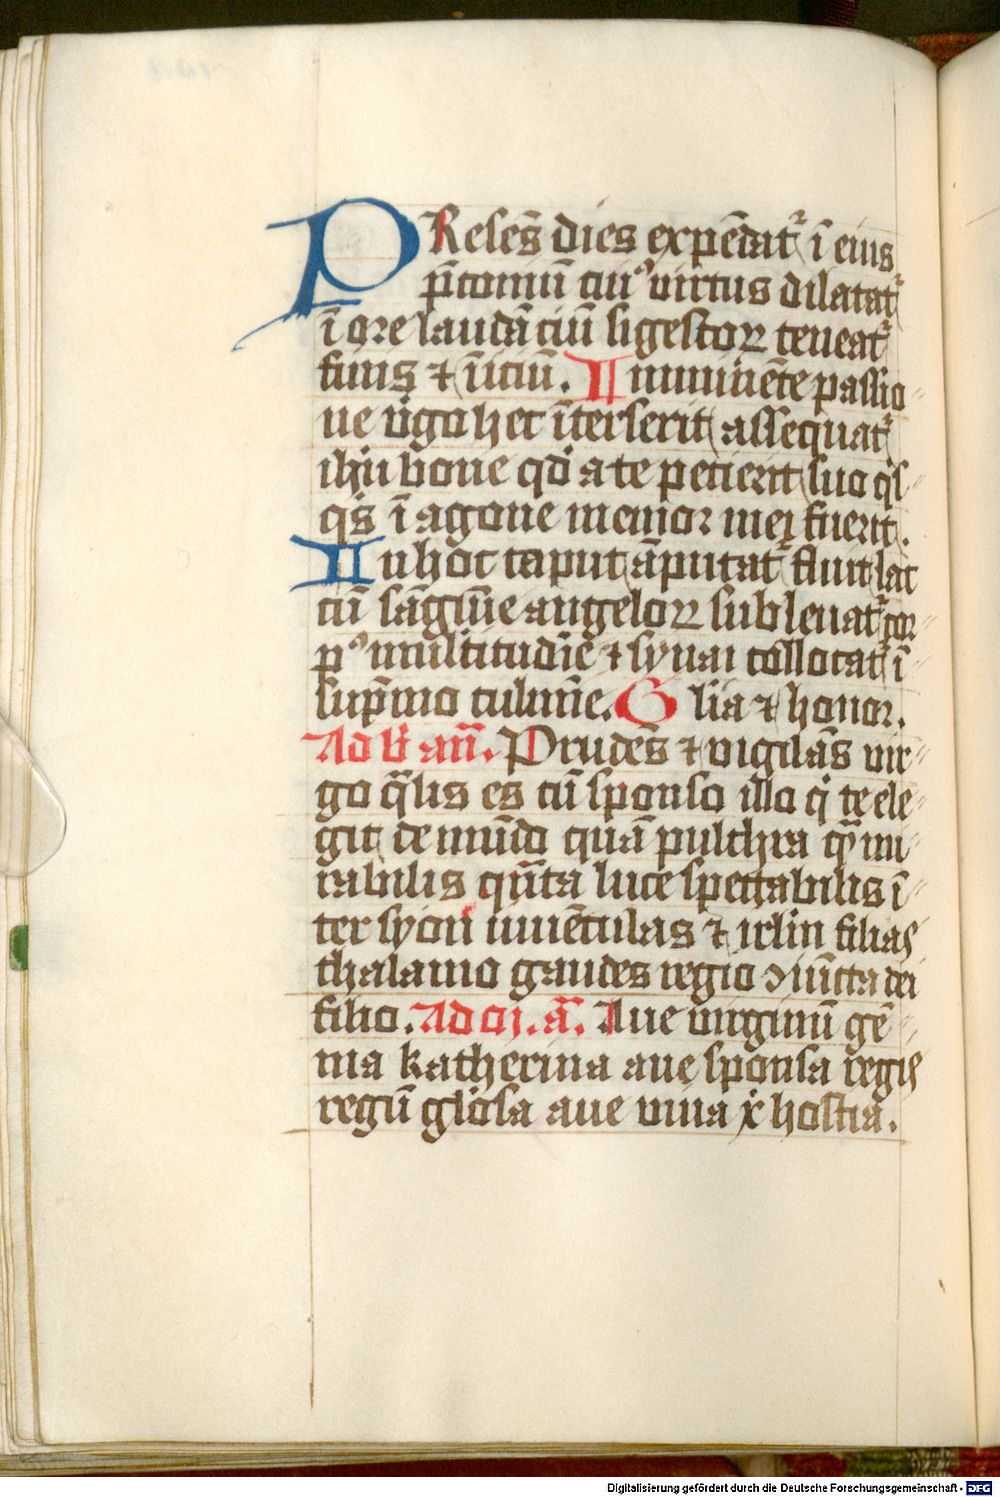 PResēs dies expēdat᷑ ī eius
p̄comiū cui᷒ virtus dilatat᷑
ī ore laudāciū si gestoꝝ teneat᷑
finis ⁊ īiciū. Inminēte passio
ne v̓go hec īterserit assequat᷑
ihū bone qd̓ a te petierit suo q̓s
q̓s ī agone memor mei fuerit.
In hoc caput āputat᷑ fluit lac
cū sāgīne angeloꝝ subleuat᷑ cor
p᷒ multitudīe ⁊ synai collocat᷑ ī
sup̄mo culmīe. Glīa ⁊ honor.
Ad b̄ añ. Prudēs ⁊ vigilās vir
go q̄lis es cū sponso illo q̇ te ele
git de mūdo quā pulchra q̄ mi
rabilis qūta luce spectabilis ī
ter syon iuuēculas ⁊ irlm̄ filias
thalamo gaudes regio ꝯiūcta dei
filio. Ad cj. ā. Aue virginū gē
ma katherina aue sponsa regis
regū gl̓osa aue viua xp̄i hostia.
Digitalisierung gefördert durch die Deutsche Forschungsgemeinschaft - DFG